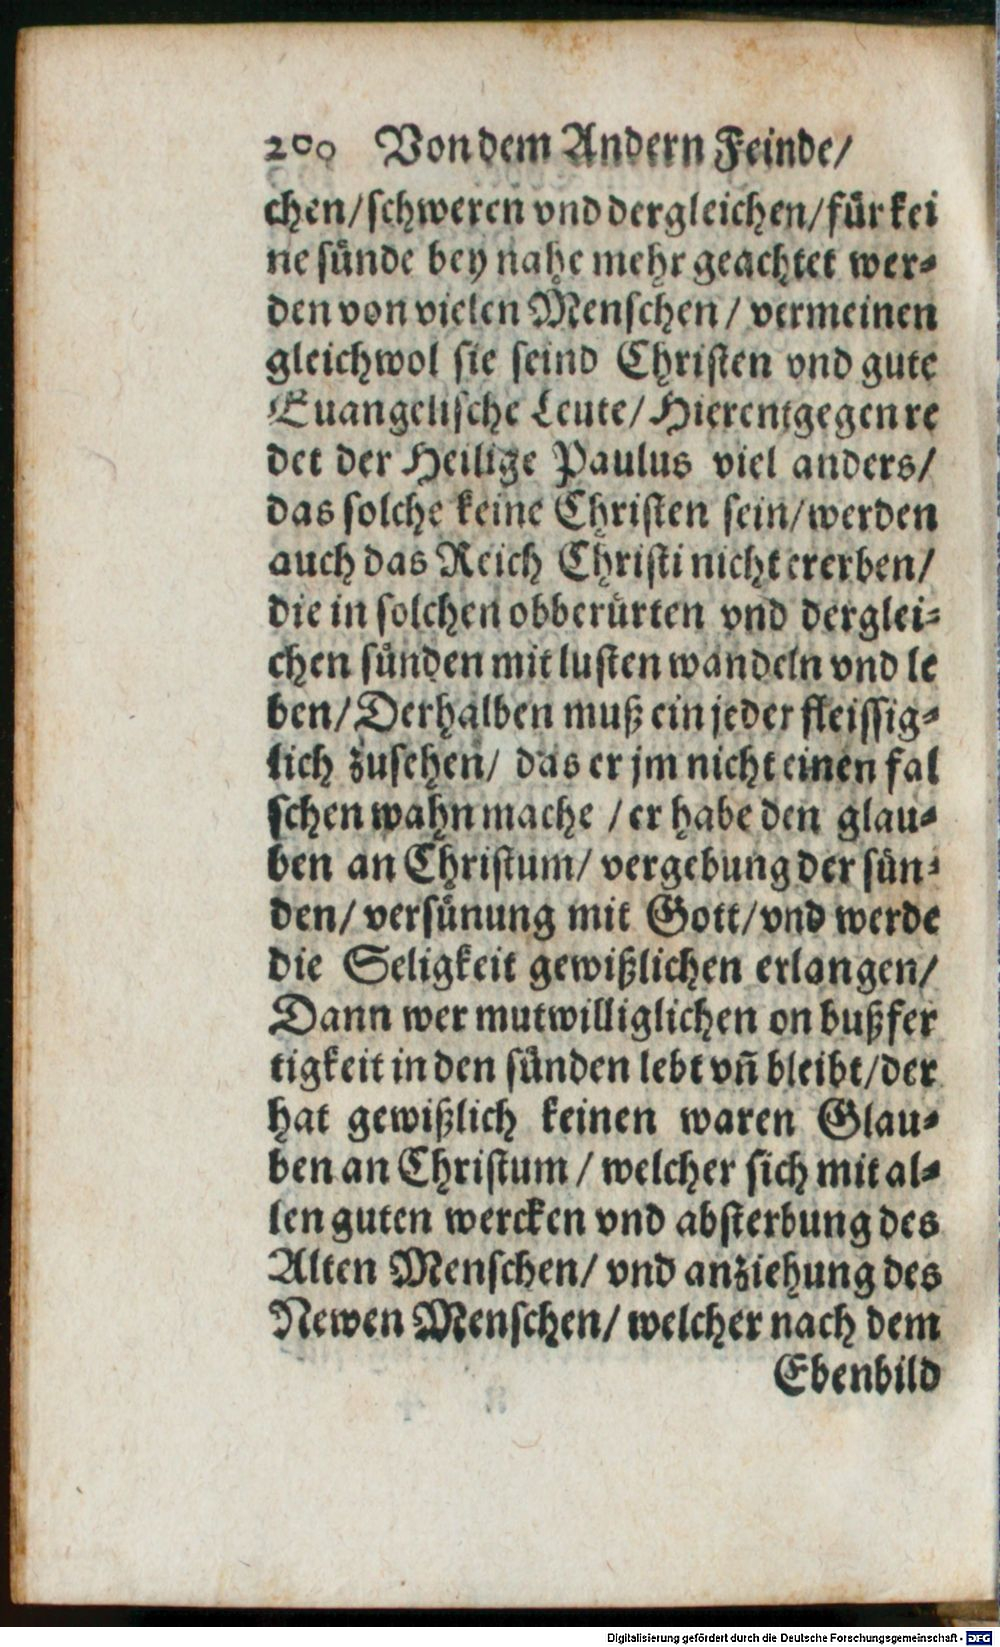 200 Von dem Andern Feinde/
chen/schweren vnd dergleichen/für kei
ne sünde bey nahe mehr geachtet wer-
den von vielen Menschen/ vermeinen
gleichwol sie seind Christen vnd gute
Euangelische Leute/ Hierentgegen re
det der Heilige Paulus viel anders/
das solche keine Christen sein/werden
auch das Reich Christi nicht ererben/
die in solchen obberürten vnd derglei-
chen sünden mit lusten wandeln vnd le
ben/Derhalben muß ein jeder fleissig-
lich zusehen/ das er jm nicht einen fal
schen wahn mache /er habe den glau-
ben an Christum/ vergebung der sün-
den/ versünung mit Gott/vnd werde
die Seligkeit gewißlichen erlangen/
Dann wer mutwilliglichen on bußfer
tigkeit in den sünden lebt vñ bleibt/der
hat gewißlich keinen waren Glau-
ben an Christum / welcher sich mit al-
len guten wercken vnd absterbung des
Alten Menschen/ vnd anziehung des
Newen Menschen/ welcher nach dem
Ebenbild
Digitalisierung gefördert durch die Deutsche Forschungsgemeinschaft - DFG